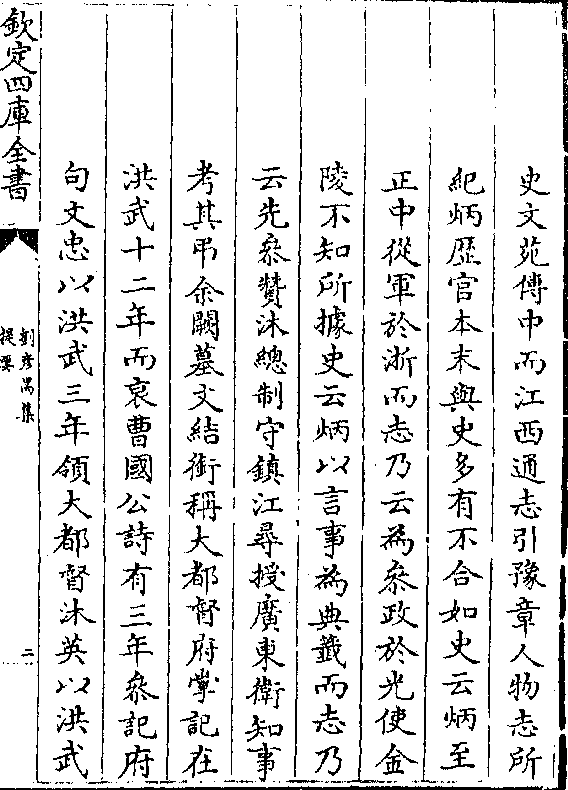 史文苑傳中而江西通志引豫章人物志所
紀炳歷官本末與史多有不合如史云炳至
正中從軍於浙而志乃云為叅政於光使金
陵不知所據史云炳以言事為典籖而志乃
云先叅賛沐總制守鎮江尋授廣東衛知事
考其弔余闕墓文結銜稱大都督府掌記在
洪武十二年而哀曹國公詩有三年叅記府
句文忠以洪武三年領大都督沐英以洪武
欽定四庫全書
劉彥昺集
提要
二